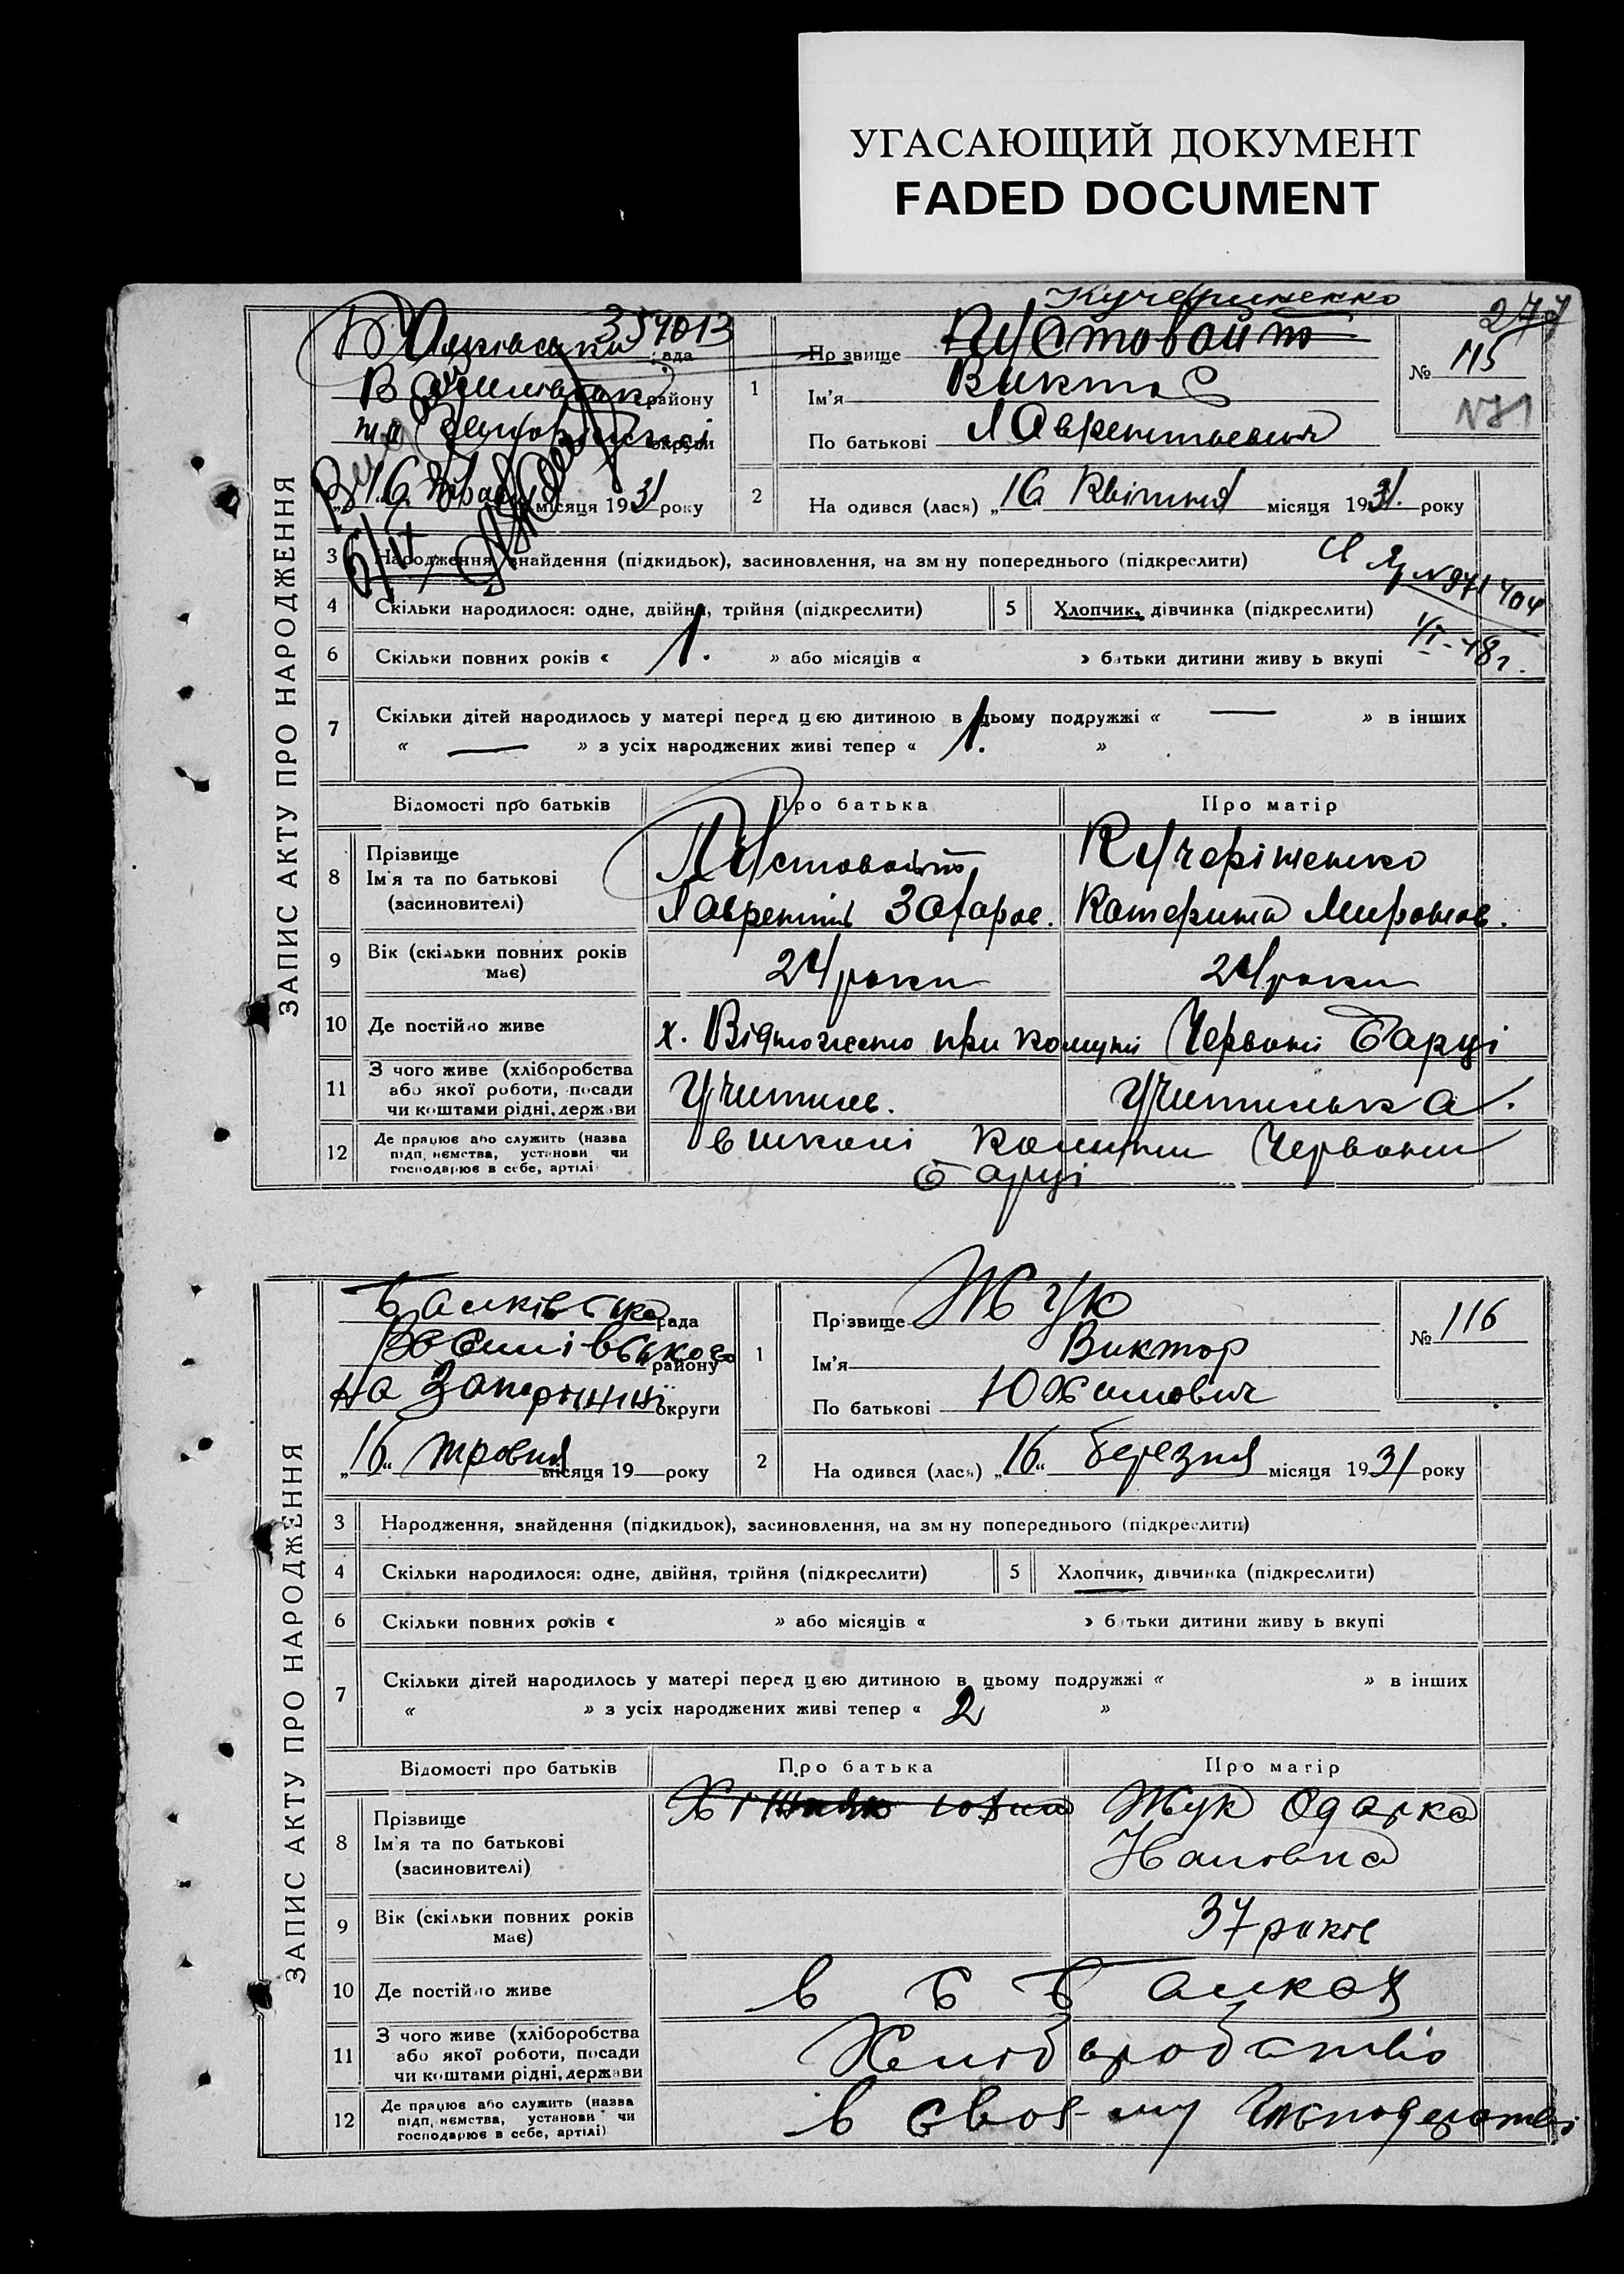 УГАСАЮЩИЙ ДОКУМЕНТ
FADED DOCUMENT
ЗАПИС АКТУ ПРО НАРОДЖЕННЯ
Кучериненко
277
354013
рада
району
округи
16 місяця 1931 року
1
Пр звище Пустовойт
Ім'я Виктор
По батькові Лаврентьевич
№ 115
2
На одився (лася) „16 Квітня місяця 1931. року
3 Народження, знайдення (підкидьок), засиновлення, на зм ну попереднього (підкреслити)
4 Скільки народилося: одне, двійня, трійня (підкреслити)
5 Хлопчик, дівчинка (підкреслити)
6 Скільки повних років « 1. » або місяців « » батьки дитини живу ь вкупі
7 Скільки дітей народилось у матері перед цєю дитиною в цьому подружжі « — » в інших
« — » з усіх народжених живі тепер « 1. »
Відомості про батьків Про батька Про матір
8 Прізвище
Ім'я та по батькові
(засиновителі)
Пустовойт
Кучеріненко
Лаврентій Захаров.
Катерина Миронов.
9 Вік (скільки повних років має)
24 роки
24 роки
10 Де постійно живе
х. при комуні Червоні Барці
11 З чого живе (хліборобства
або якої роботи, посади
чи коштами рідні, держави
Учитель.
Учителька.
12 Де працює або служить (назва
підприємства, установи чи
господарює в себе, артілі)
в школі комуни Червони
Барці
ЗАПИС АКТУ ПРО НАРОДЖЕННЯ
Балківська рада
Василівського району
на Запоріжжі округи
„16“ травня місяця 19 року
1
Прізвище Жук
Ім'я Виктор
По батькові Юхимович
№ 116
2
На одився (лася) „16“ березня місяця 1931 року
3 Народження, знайдення (підкидьок), засиновлення, на зм ну попереднього (підкреслити)
4 Скільки народилося: одне, двійня, трійня (підкреслити)
5 Хлопчик, дівчинка (підкреслити)
6 Скільки повних років « » або місяців « » б тьки дитини живу ь вкупі
7 Скільки дітей народилось у матері перед цєю дитиною в цьому подружжі « » в інших
« » з усіх народжених живі тепер « 2 »
Відомості про батьків Про батька Про матір
8 Прізвище
Ім'я та по батькові
(засиновителі)
Жук Одарка
9 Вік (скільки повних років має)
37 років
10 Де постійно живе
в с Балках
11 З чого живе (хліборобства
або якої роботи, посади
чи коштами рідні, держави
Хліборобство
12 Де працює або служить (назва
підприємства, установи чи
господарює в себе, артілі)
в своєму господарстві